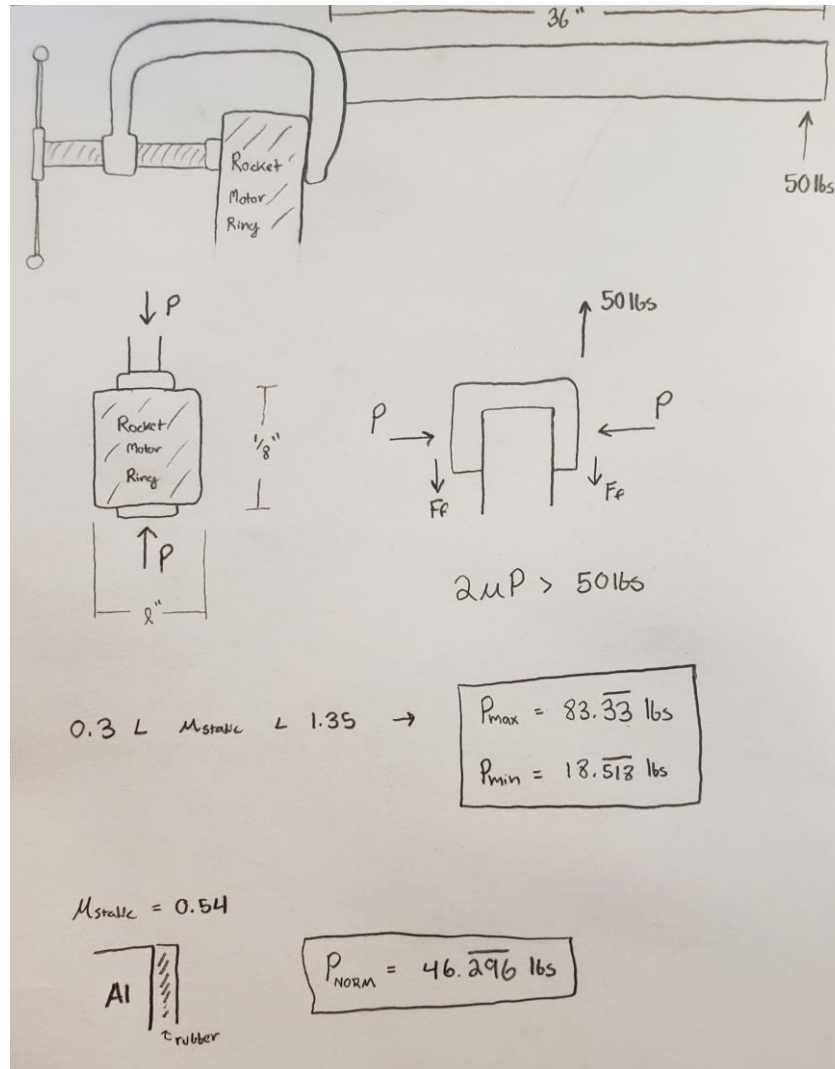 36"
Rocket
Motor
Ring
50 lbs
P
Rocket
Motor
Ring
1/8"
P
l"
50 lbs
P
P
Ff
Ff
2μP > 50lbs
0.3 < μstatic < 1.35 →
Pmax = 83.3̅3̅ lbs
Pmin = 18.5̅1̅8̅ lbs
μstatic = 0.54
Al
rubber
PNORM = 46.2̅9̅6̅ lbs